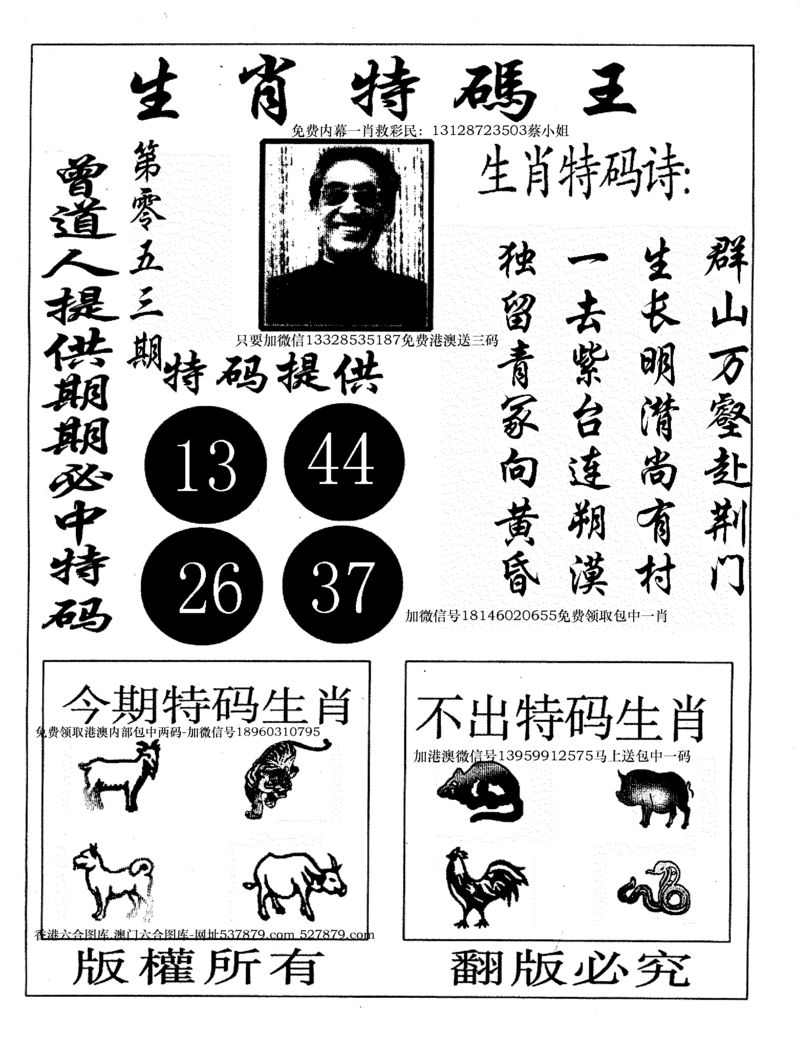 生肖特碼王
免费内幕一肖救彩民：13128723503蔡小姐
曾道人提供期期必中特码
第零五三期
生肖特码诗:
群山万壑赴荆门
生长明潸尚有村
一去紫台连朔漠
独留青冢向黄昏
只要加微信13328535187免费港澳送三码
特码提供
13
44
26
37
加微信号18146020655免费领取包中一肖
今期特码生肖
免费领取港澳内部包中两码-加微信号18960310795
不出特码生肖
加港澳微信号13959912575马上送包中一码
香港六合图库,澳门六合图库-网址537879.com 527879.com
版權所有
翻版必究